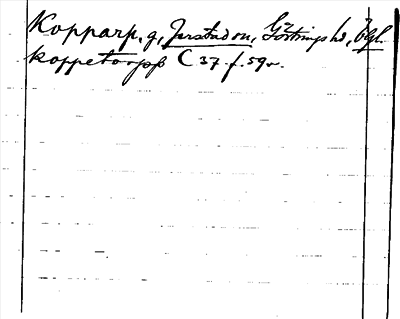 Kopparp, g, Jerstad sn, Göstrings hd, Ögl.
koppetorpp C 37. f. 59v.